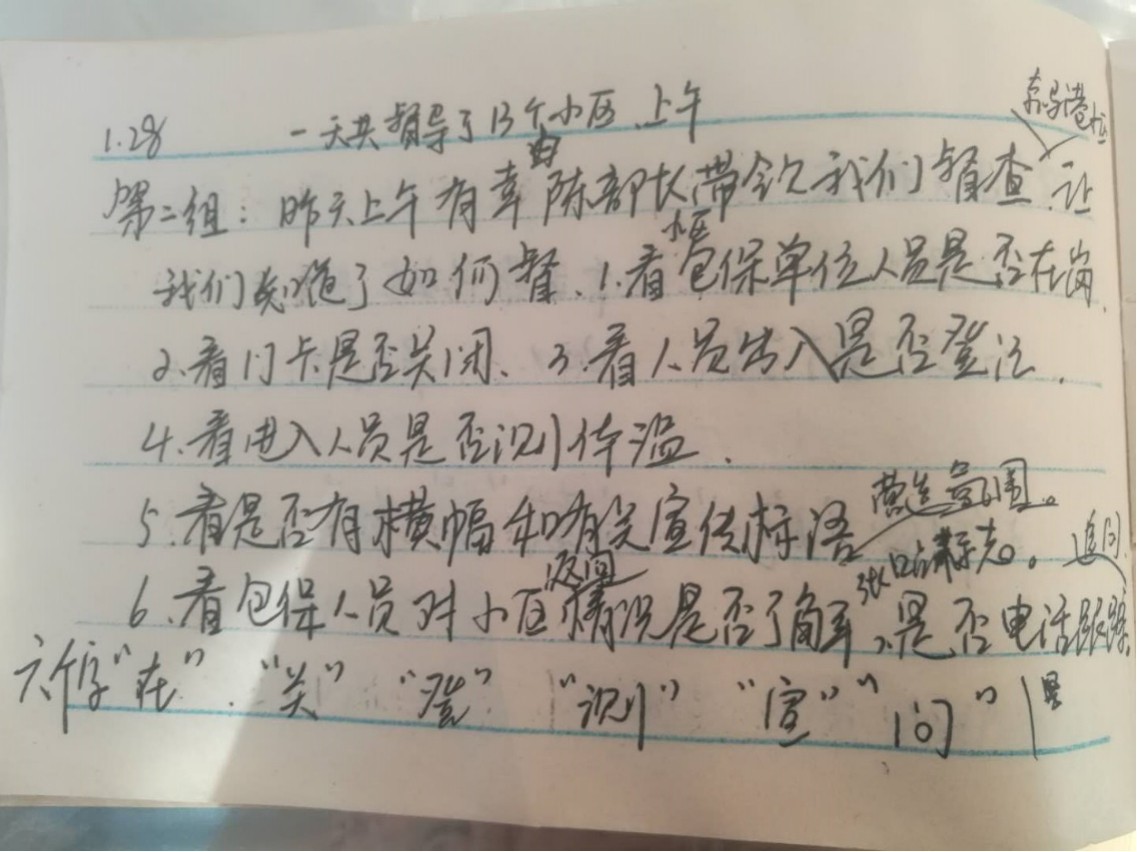 1.28 一天共督导了13个小区、上午
第二组：昨天上午有幸由陈部长带领我们督查、让
我们知道了如何督、1.看小区包保单位人员是否在岗、
2.看门卡是否关闭、3.看人员出入是否登记、
4.看进入人员是否测体温、
5.看是否有横幅和有关宣传标语 营造氛围。
6.看包保人员对小区返回情况是否了解、是否电话跟踪。追问
六个字"在"、"关" "登" "测" "宣" "问"